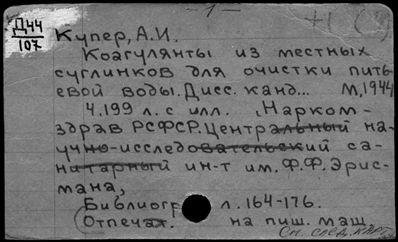 - 1 -
Д44
107
Купер, А.И.
Коагулянты из местных
суглинков для очистки пить-
евой воды. Дисс. канд... М, 1944
4,199 л. с илл. (Нарком-
здрав РСФСР. Центральный на-
учно-исследовательский са-
нитарный ин-т им. Ф.Ф. Эрис-
мана,
Библиогр л. 164-176.
Отпечат. на пиш. маш.
См. след. карт